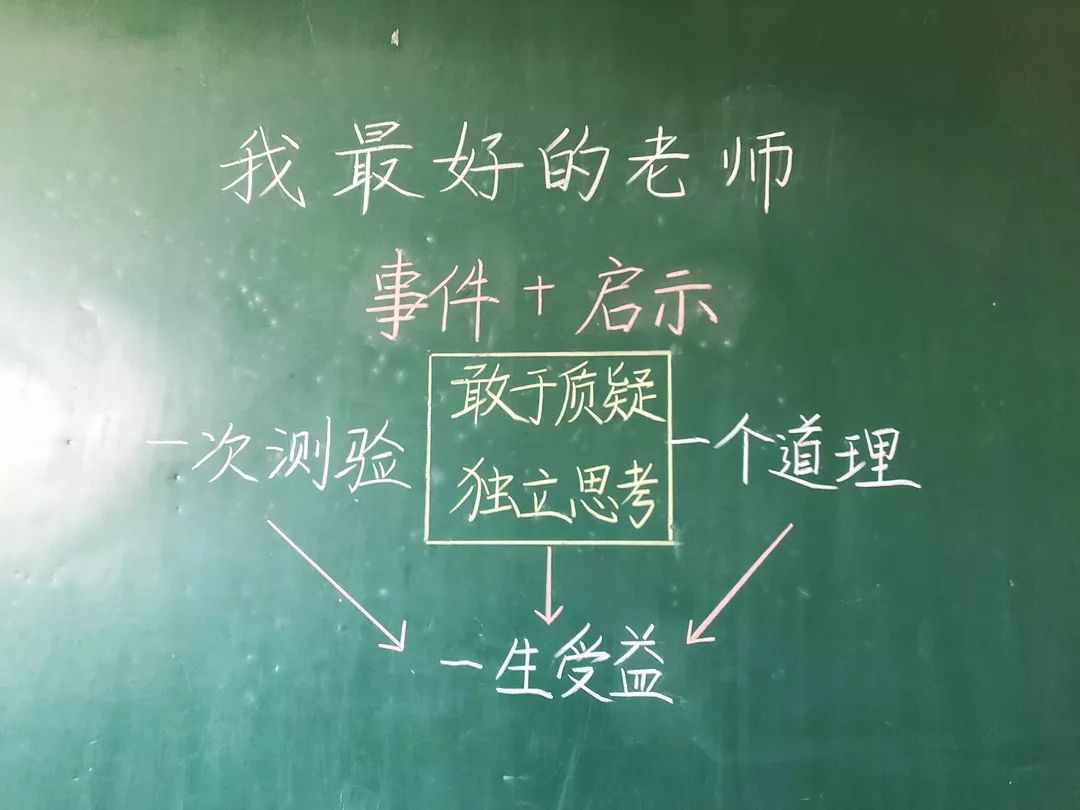 我最好的老师
事件+启示
敢于质疑
一次测验
一个道理
独立思考
一生受益